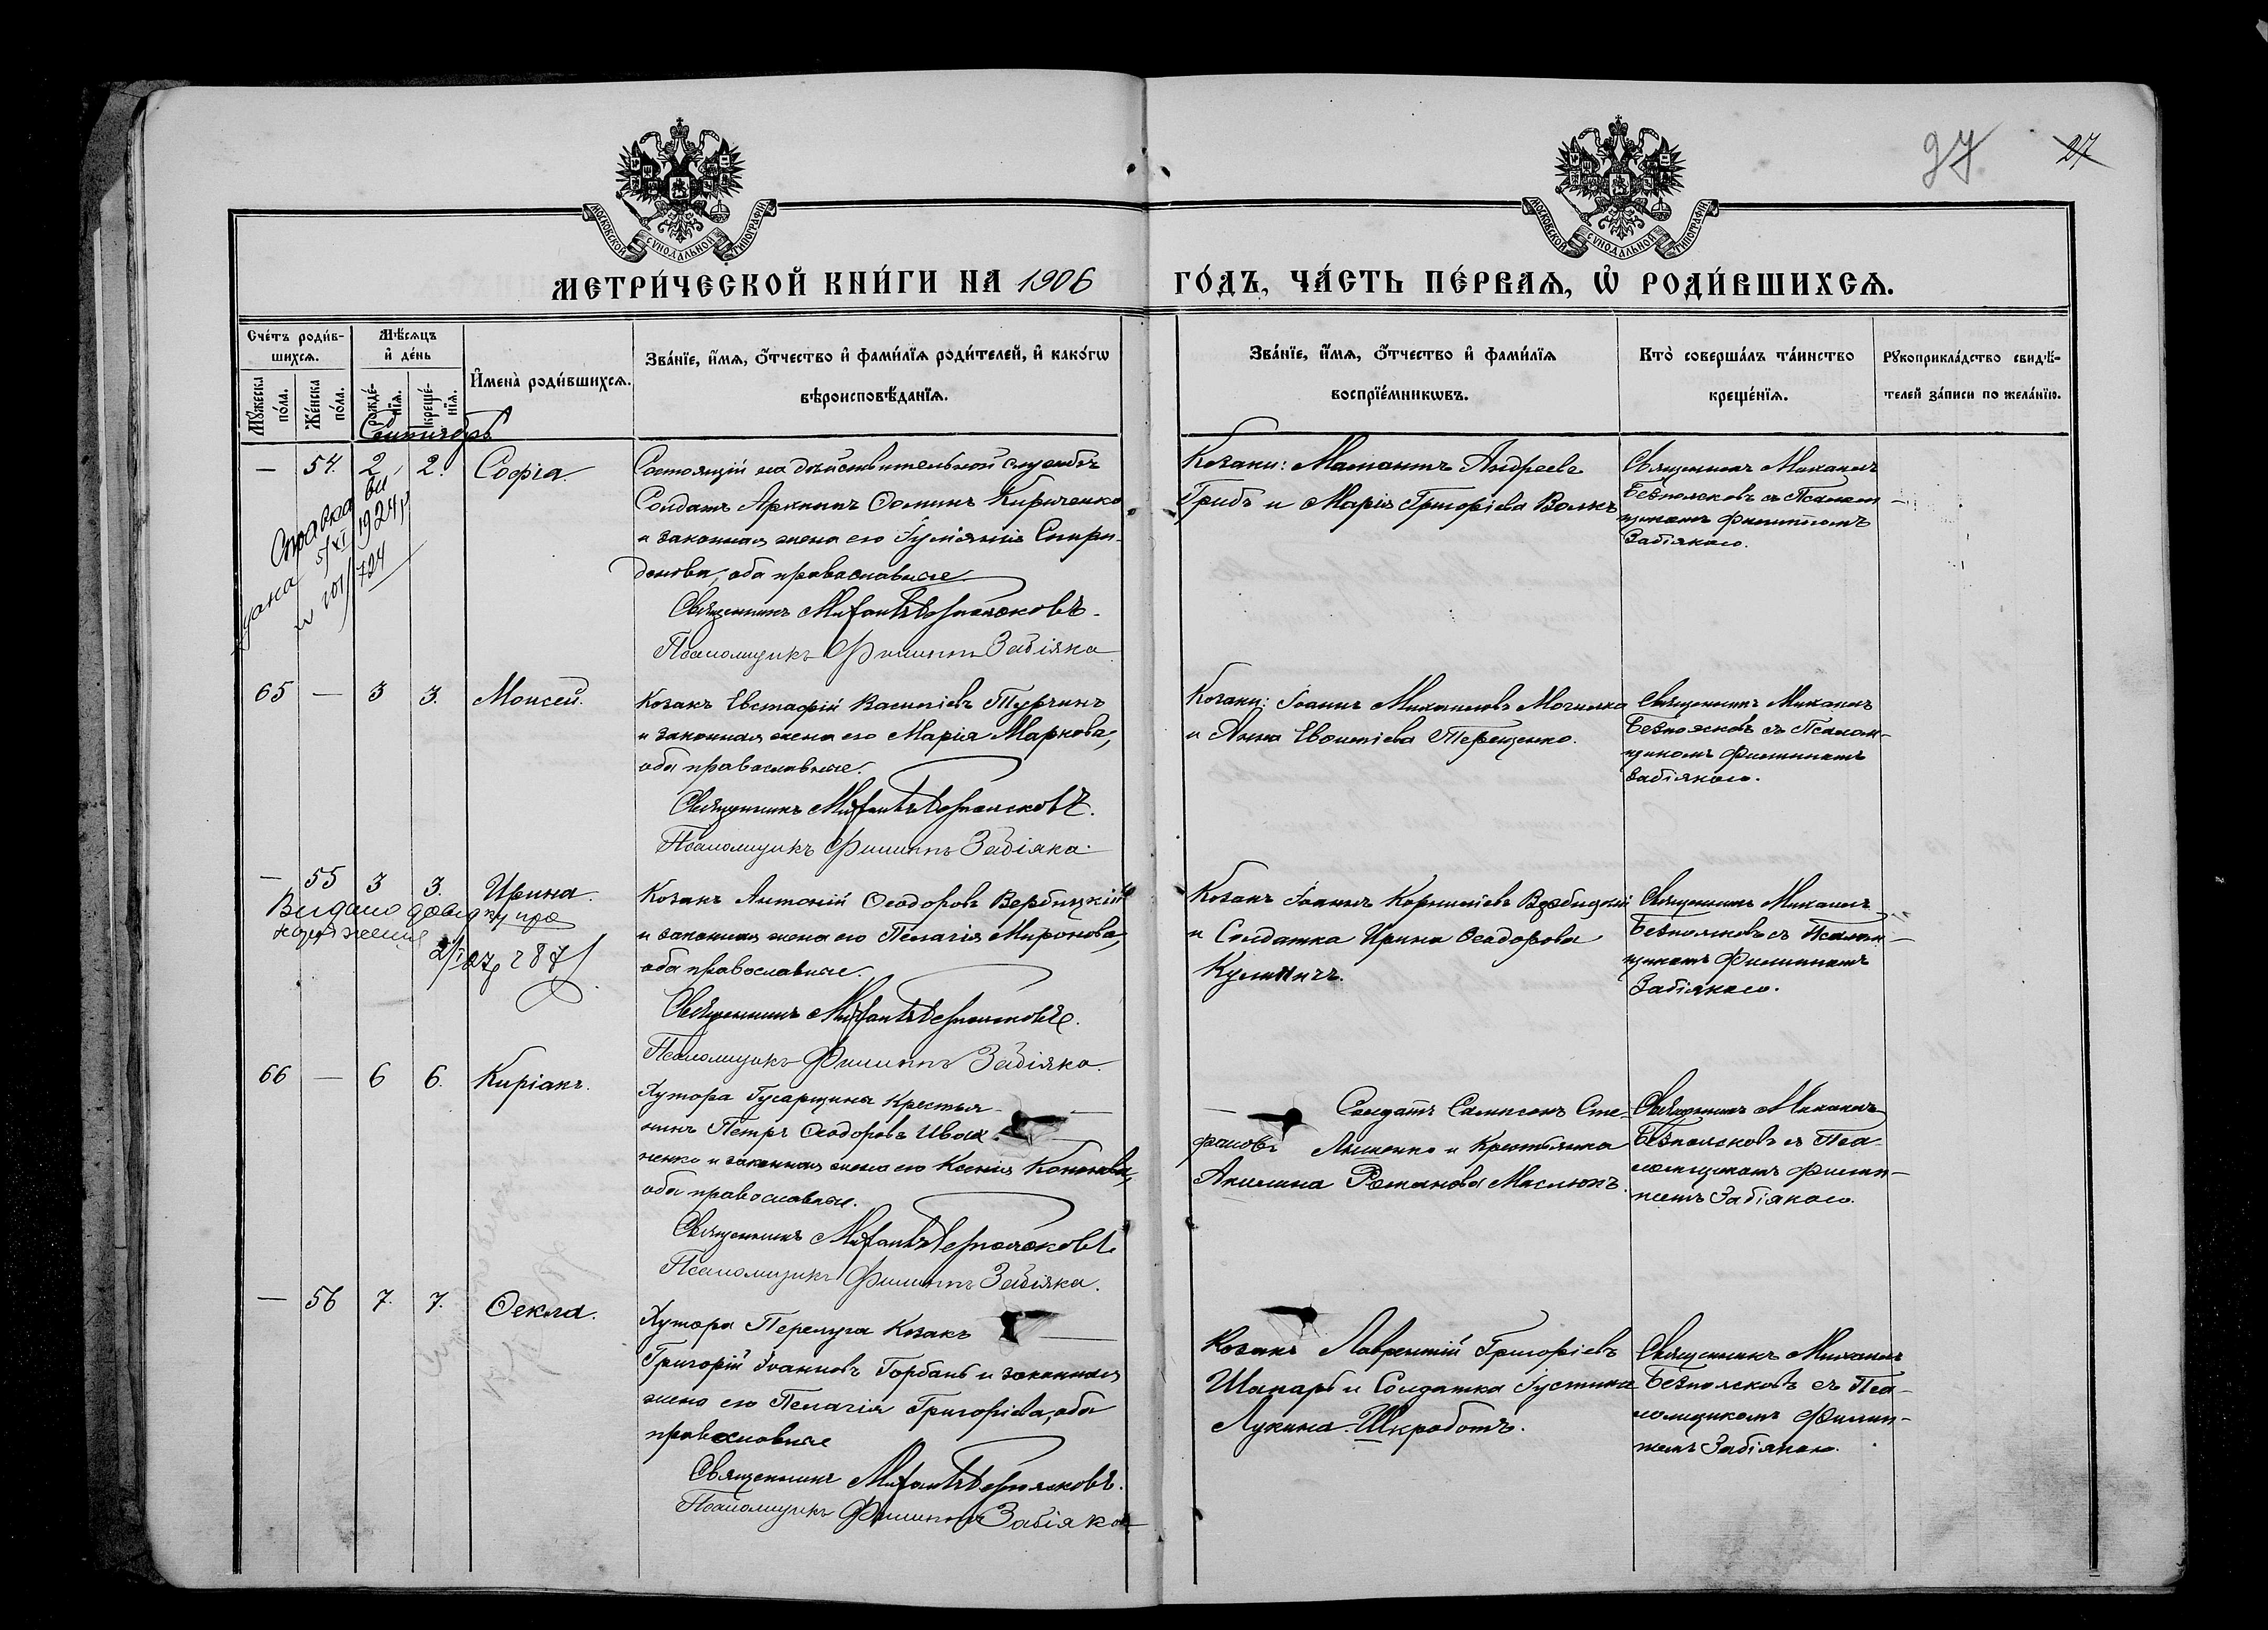 27
27
МОСКОВСКОЙ СУНОДАЛЬНОЙ ТИПОГРАФІИ
МОСКОВСКОЙ СУНОДАЛЬНОЙ ТИПОГРАФІИ
МЕТРИ́ЧЕСКОЙ КНИ́ГИ НА 1906 ГО́ДЪ, ЧА́СТЬ ПЕ́РВАѦ, Ѡ҆ РОДИ́ВШИХСѦ.
Сче́тъ роди́в-
шихсѧ.
Мꙋ́жеска по́ла.
Же́нска по́ла.
Мѣ́сѧцъ и҆ де́нь
рожде́-нїѧ.
креще́-нїѧ.
И҆мена̀ роди́вшихсѧ.
Зва́нїе, и҆́мѧ, ѻ҆́тчество и҆ фами́лїѧ роди́телей, и҆ како́гѡ
вѣроисповѣ́данїѧ.
Зва́нїе, и҆́мѧ, ѻ҆́тчество и҆ фами́лїѧ
воспрїе́мникѡвъ.
Кто̀ соверша́лъ та́инство
креще́нїѧ.
Рꙋкоприкла́дство свидѣ́-
телей за́писи по жела́нїю.
Сентябрь
— 54. 2 2. Софія.
Состоящій на дѣйствительной службѣ
Солдатъ Архипъ Ѳоминъ Кириченко
и законная жена его Іуліанія Спири-
донова, оба православные
Священникъ Михаилъ Безпоясковъ.
Псаломщикъ Филиппъ Забіяка
Козаки: Мамантъ Андреевъ
Грибъ и Марія Григоріева Волкъ
Священникъ Михаилъ
Безпоясковъ съ Псалом-
щикомъ Филиппомъ
Забіякою.
Справка ви
дана 5/XI 1924 р
724
65 — 3 3. Моисей.
Козакъ Евстафій Василіевъ Турчинъ
и законная жена его Марія Маркова,
оба православные.
Священникъ Михаилъ Безпоясковъ.
Псаломщикъ Филиппъ Забіяка.
Козаки: Іоаннъ Михаиловъ Могилка
и Анна Терещенко.
Священникъ Михаилъ
Безпоясковъ съ Псалом-
щикомъ Филиппомъ
Забіякою.
— 55 3 3. Ирина.
Видано довідку про
народження
287
Козакъ Антоній Ѳеодоровъ Вербицкій
и законная жена его Пелагія Миронова,
оба православные.
Священникъ Михаилъ Безпоясковъ.
Псаломщикъ Филиппъ Забіяка.
Козакъ Іоаннъ Корниліевъ Вербицкій
и Солдатка Ирина Ѳеодорова
Кулиничъ.
Священникъ Михаилъ
Безпоясковъ съ Псалом-
щикомъ Филиппомъ
Забіякою.
66 — 6 6. Киріакъ.
Хутора Гусарщина Крестья-
нинъ Петръ Ѳеодоровъ Ивах-
ненко и законная жена его Ксенія Кононова,
оба православные.
Священникъ Михаилъ Безпоясковъ.
Псаломщикъ Филиппъ Забіяка.
Солдатъ Сампсонъ Сте-
фановъ Ляшенко и Крестьянка
Акилина Романова Маслюкъ.
Священникъ Михаилъ
Безпоясковъ съ Пса-
ломщикомъ Филип-
помъ Забіякою.
— 56 7. 7. Ѳекла.
Хутора Перелуга Козакъ
Григорій Іоанновъ Горбань и законная
жена его Пелагія Григоріева, оба
православные
Священникъ Михаилъ Безпоясковъ.
Псаломщикъ Филиппъ Забіяка
Козакъ Лаврентій Григоріевъ
Шапарь и Солдатка Іустина
Лукина Шкработъ.
Священникъ Михаилъ
Безпоясковъ съ Пса-
ломщикомъ Филип-
помъ Забіякою.